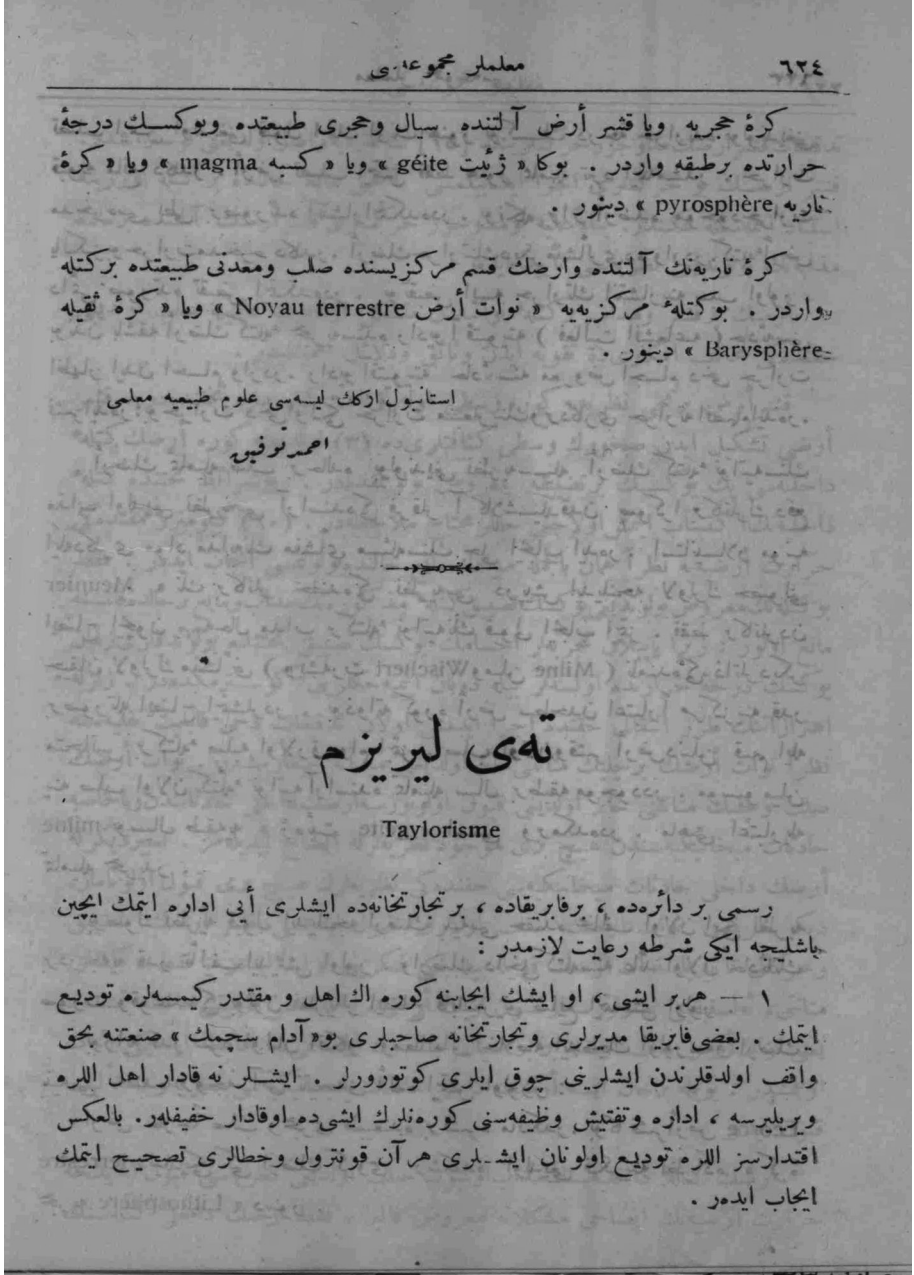 ٦٢٤
معلملر مجموعه‌سی
كرۀ حجریه ویا قشر أرض آلتنده سیال وحجری طبیعتده ویوكسك درجۀ
حرارتده برطبقه واردر . بوكا « ژئیت géite » ویا « كسبه magma » ویا « كرۀ
ناریه pyrosphère » دینور .
كرۀ ناریه‌نك آلتنده وارضك قسم مركزیسنده صلب ومعدنی طبیعتده بركتله
واردر . بوكتلهٔ مركزیه‌یه « نوات أرض Noyau terrestre » ویا « كرۀ ثقیله
Barysphère » دینور .
استانبول اركك لیسه‌سی علوم طبیعیه معلمی
احمد توفیق
ته‌ی لیریزم
Taylorisme
رسمی بر دائره‌ده ، برفابریقاده ، بر تجارتخانه‌ده ایشلری أیی اداره ایتمك ایچین
باشلیجه ایكی شرطه رعایت لازمدر :
١ — هربر ایشی ، او ایشك ایجابنه كوره اك اهل و مقتدر كیمسه‌لره تودیع
ایتمك . بعضی فابریقا مدیرلری وتجارتخانه صاحبلری بو « آدام سچمك » صنعتنه بحق
واقف اولدقلرندن ایشلرینی چوق ایلری كوتورورلر . ایشلر نه قادار اهل اللره
ویریلیرسه ، اداره وتفتیش وظیفه‌سنی كوره‌نلرك ایشی ده اوقادار خفیفلر. بالعكس
اقتدارسز اللره تودیع اولونان ایشلری هرآن قونترول وخطالری تصحیح ایتمك
ایجاب ایدر .